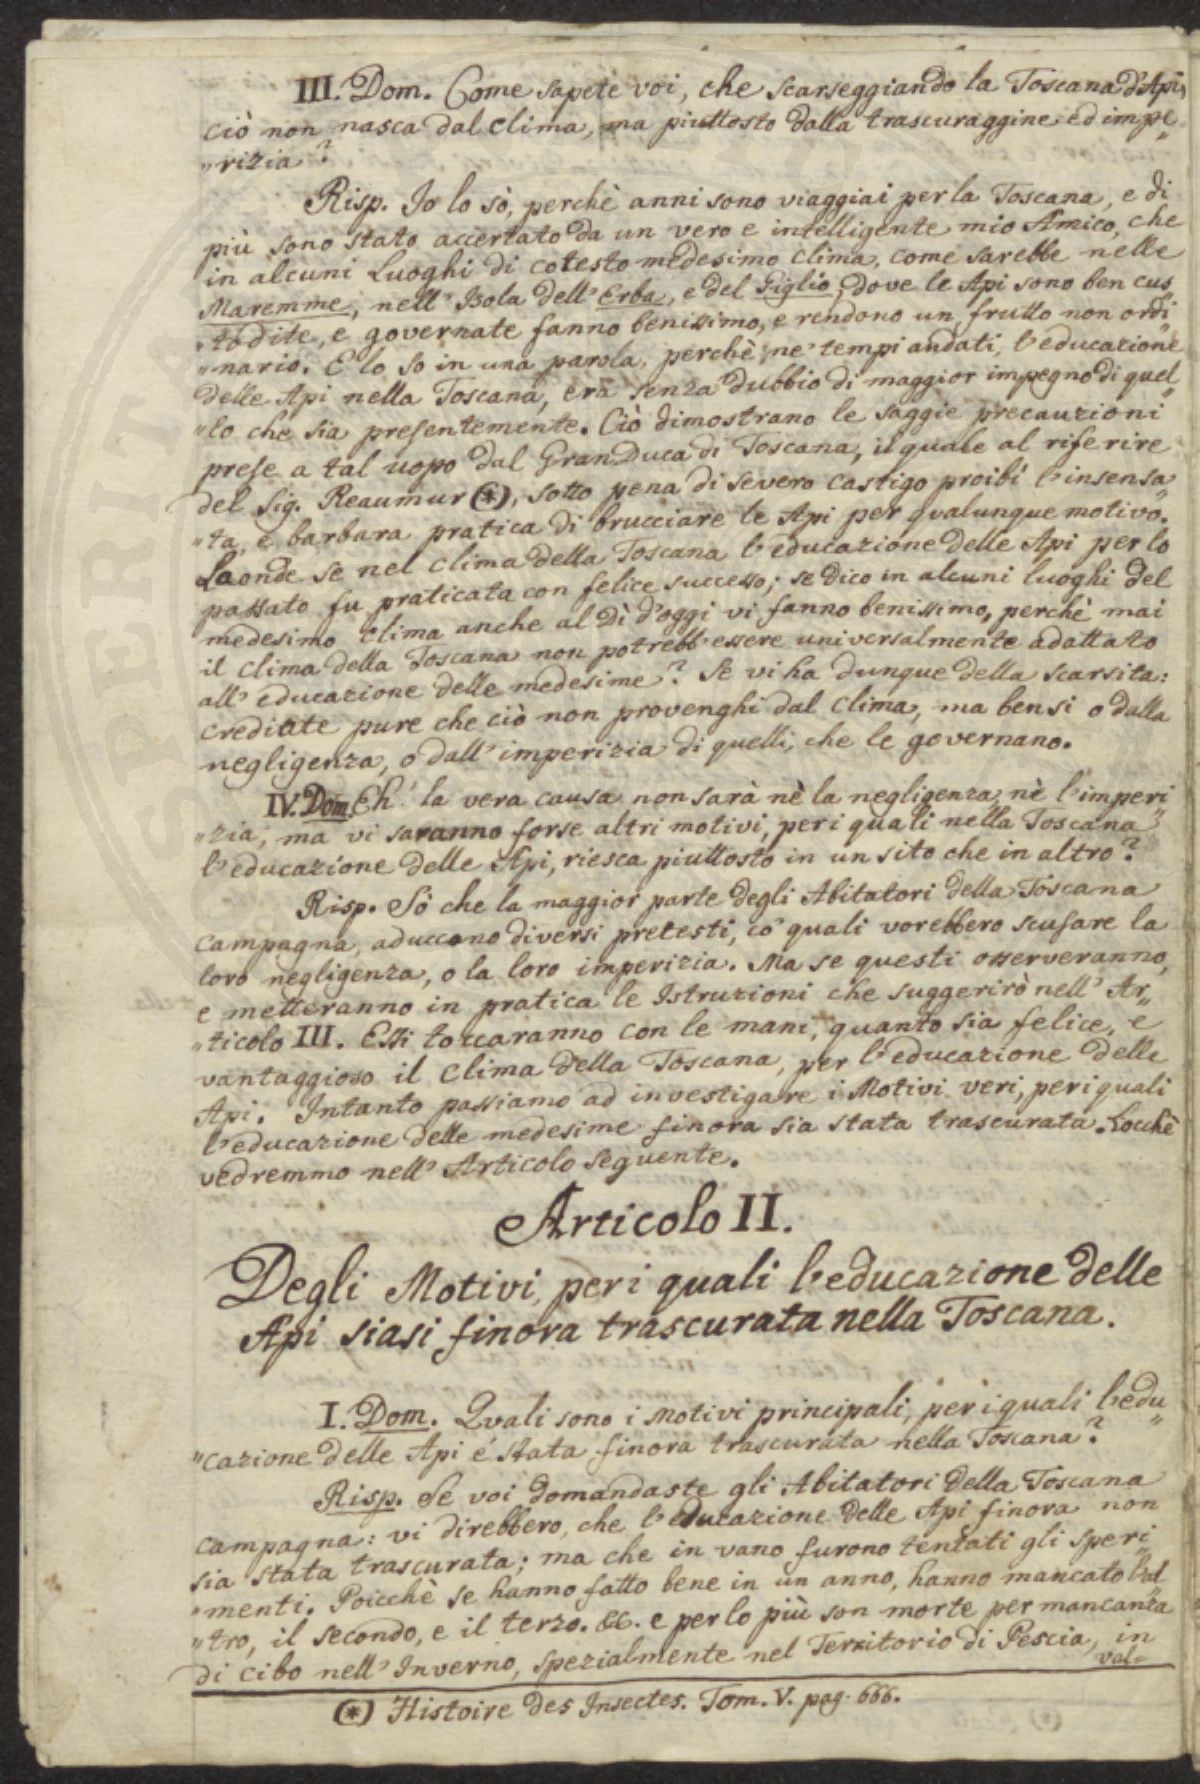 III. Dom. Come sapete voi, che scarseggiando la Toscana d'Api,
ciò non nasca dal clima, ma piuttosto dalla trascuraggine ed impe„
„rizia?
Risp. Io lo sò, perchè anni sono viaggiai per la Toscana, e di
più sono stato accertato da un vero e intelligente mio Amico, che
in alcuni Luoghi di cotesto medesimo clima, come sarebbe nelle
Maremme, nell' Isola dell' Erba, e del Giglio, dove le Api sono ben cus„
„todite, e governate fanno benissimo, e rendono un frutto non ordi„
„nario. E lo so in una parola, perchè ne' tempi andati, l'educazione
delle Api nella Toscana, era senza dubbio di maggior impegno di quel„
„lo che sia presentemente. Ciò dimostrano le saggie precauzioni
prese a tal uopo dal GranDuca di Toscana, il quale al riferire
del Sig. Reaumur (*), sotto pena di severo castigo proibì l'insensa„
„ta, e barbara pratica di brucciare le Api per qualunque motivo.
Laonde se nel clima della Toscana l'educazione delle Api per lo
passato fu praticata con felice successo; se dico in alcuni luoghi del
medesimo clima anche al Dì d'oggi vi fanno benissimo, perchè mai
il clima della Toscana non potrebb'essere universalmente adattato
all' educazione delle medesime? Se vi ha dunque della scarsita:
crediate pure che ciò non provenghi dal clima, ma bensi o dalla
negligenza, o dall' imperizia di quelli, che le governano.
IV. Dom. Eh! la vera causa non sarà nè la negligenza, nè l'imperi„
„zia; ma vi saranno forse altri motivi, per i quali nella Toscana
l'educazione delle Api, riesca piuttosto in un sito che in altro?
Risp. Sò che la maggior parte degli Abitatori della Toscana
campagna, aduccono diversi pretesti, co' quali vorebbero scusare la
loro negligenza, o la loro imperizia. Ma se questi osserveranno,
e metteranno in pratica le Istruzioni che suggerirò nell' Ar„
„ticolo III. Essi toccaranno con le mani, quanto sia felice, e
vantaggioso il clima della Toscana, per l'educazione delle
Api. Intanto passiamo ad investigare i Motivi veri, per i quali
l'educazione delle medesime finora sia stata trascurata. Locchè
vedremmo nell' Articolo seguente.
Articolo II.
Degli Motivi, per i quali l'educazione delle
Api siasi finora trascurata nella Toscana.
I. Dom. Quali sono i Motivi principali, per i quali l'edu„
„cazione delle Api é stata finora trascurata nella Toscana?
Risp. Se voi domandaste gli Abitatori della Toscana
campagna: vi direbbero, che l'educazione delle Api finora non
sia stata trascurata; ma che in vano furono tentati gli speri„
„menti. Poicchè se hanno fatto bene in un anno, hanno mancato l'al„
„tro, il secondo, e il terzo. &c. e per lo più son morte per mancanza
di cibo nell' Inverno, spezialmente nel Territorio di Pescia, in
val=
(*) Histoire des Insectes. Tom. V. pag. 666.
SPERITA